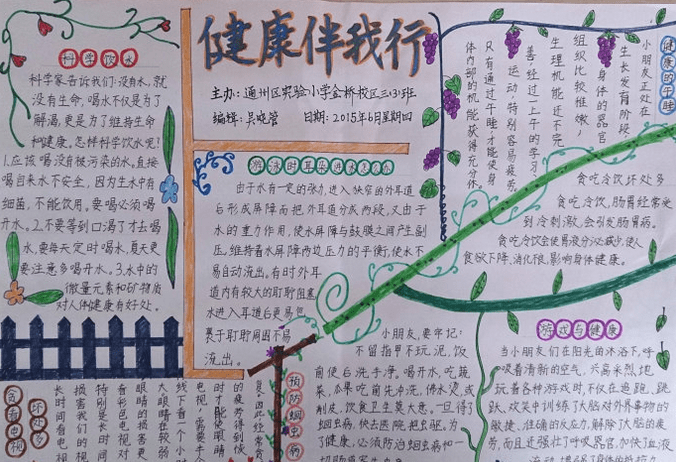 健康伴我行
主办：通州区实验小学金桥校区三·3·班
编辑：吴晓管 日期：2015年6月星期四
科学饮水
科学家告诉我们：没有水，就
没有生命。喝水不仅是为了
解渴，更是为了维持生命
和健康。怎样科学饮水呢？
1.应该喝没有被污染的水。直接
喝自来水不安全，因为生水中有
细菌，不能饮用。要喝必须喝
开水。2.不要等到口渴了才去喝
水，要每天定时喝水，夏天更
要注意多喝开水。3.水中的
微量元素和矿物质
对人体健康有好处。
游泳时耳朵进水怎么办
由于水有一定的张力，进入狭窄的外耳道
后形成屏障而把外耳道分成两段，又由于
水的重力作用，使水屏障与鼓膜之间产生副
压，维持着水屏障两边压力的平衡，使水不
易自动流出。有时外耳
道内有较大的耵聍阻塞
水进入耳道后更易包
裹于耵聍周围不易
流出。
健康的午睡
小朋友正处在
生长发育阶段，
身体的器官
组织比较稚嫩，
生理机能还不完
善，经过一上午的学习、
运动，特别容易疲劳，
只有通过午睡才能使身
体内部的机能获得充分休
贪吃冷饮坏处多
贪吃冷饮，肠胃经常受
到冷刺激，会引发肠胃病。
贪吃冷饮会使胃液分泌减少，使人
食欲下降，消化很，影响身体健康。
游戏与健康
当小朋友们在阳光的沐浴下，呼
吸着清新的空气，兴高采烈地
玩着各种游戏时，不仅在追跑、跳
跃、欢笑中训练了大脑对外界事物的
敏捷、准确的反应力，解除了大脑的疲
劳，而且还强壮了呼吸器官，加快了血液
预防蛔虫病
小朋友，要牢记：
不留指甲不玩泥，饭
前便后洗手净。喝开水，吃蔬
菜，瓜果吃前先冲洗，沸水烫，或
削皮，饮食卫生莫大意。一旦得了
蛔虫病，快去医院把虫驱。为
了健康，必须防治蛔虫病和一
贪看电视
坏处多
长时间看电视
损害我们的视
特别是长时间
看彩色电视对
眼睛的损害更
大，眼睛在较弱
线下看一个小时
电视，需要半小
时才能使眼睛
的疲劳得到恢
复。因此经常贪